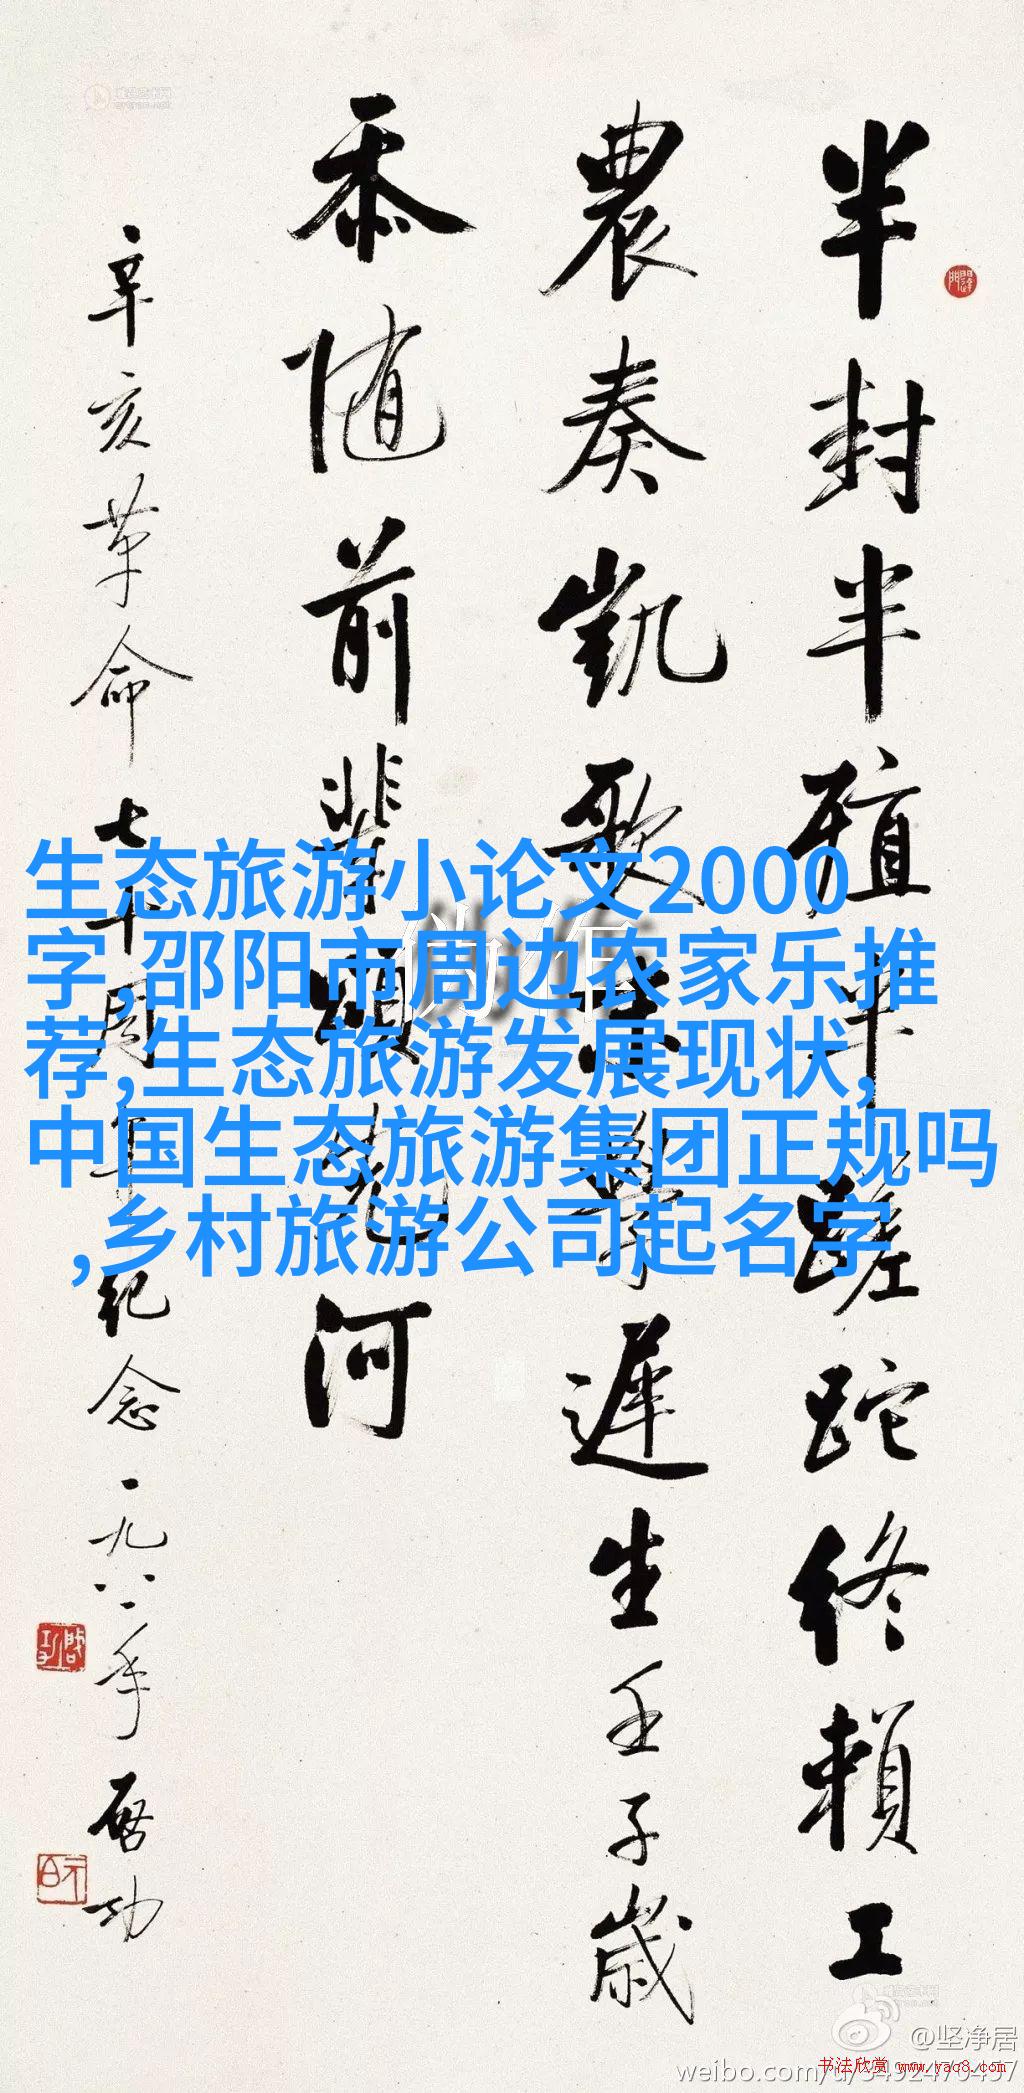 半封半殖半蹉跎終賴工
農奏凱歌末學遲生壬子歲
忝随前輩河
辛亥革命七十周年纪念一九八一年啓功
生态旅游小论文2000
字,邵阳市周边农家乐推
荐,生态旅游发展现状,
中国生态旅游集团正规吗
,乡村旅游公司起名字
伪作
@坚净居
书法欣赏 www.yac8.com